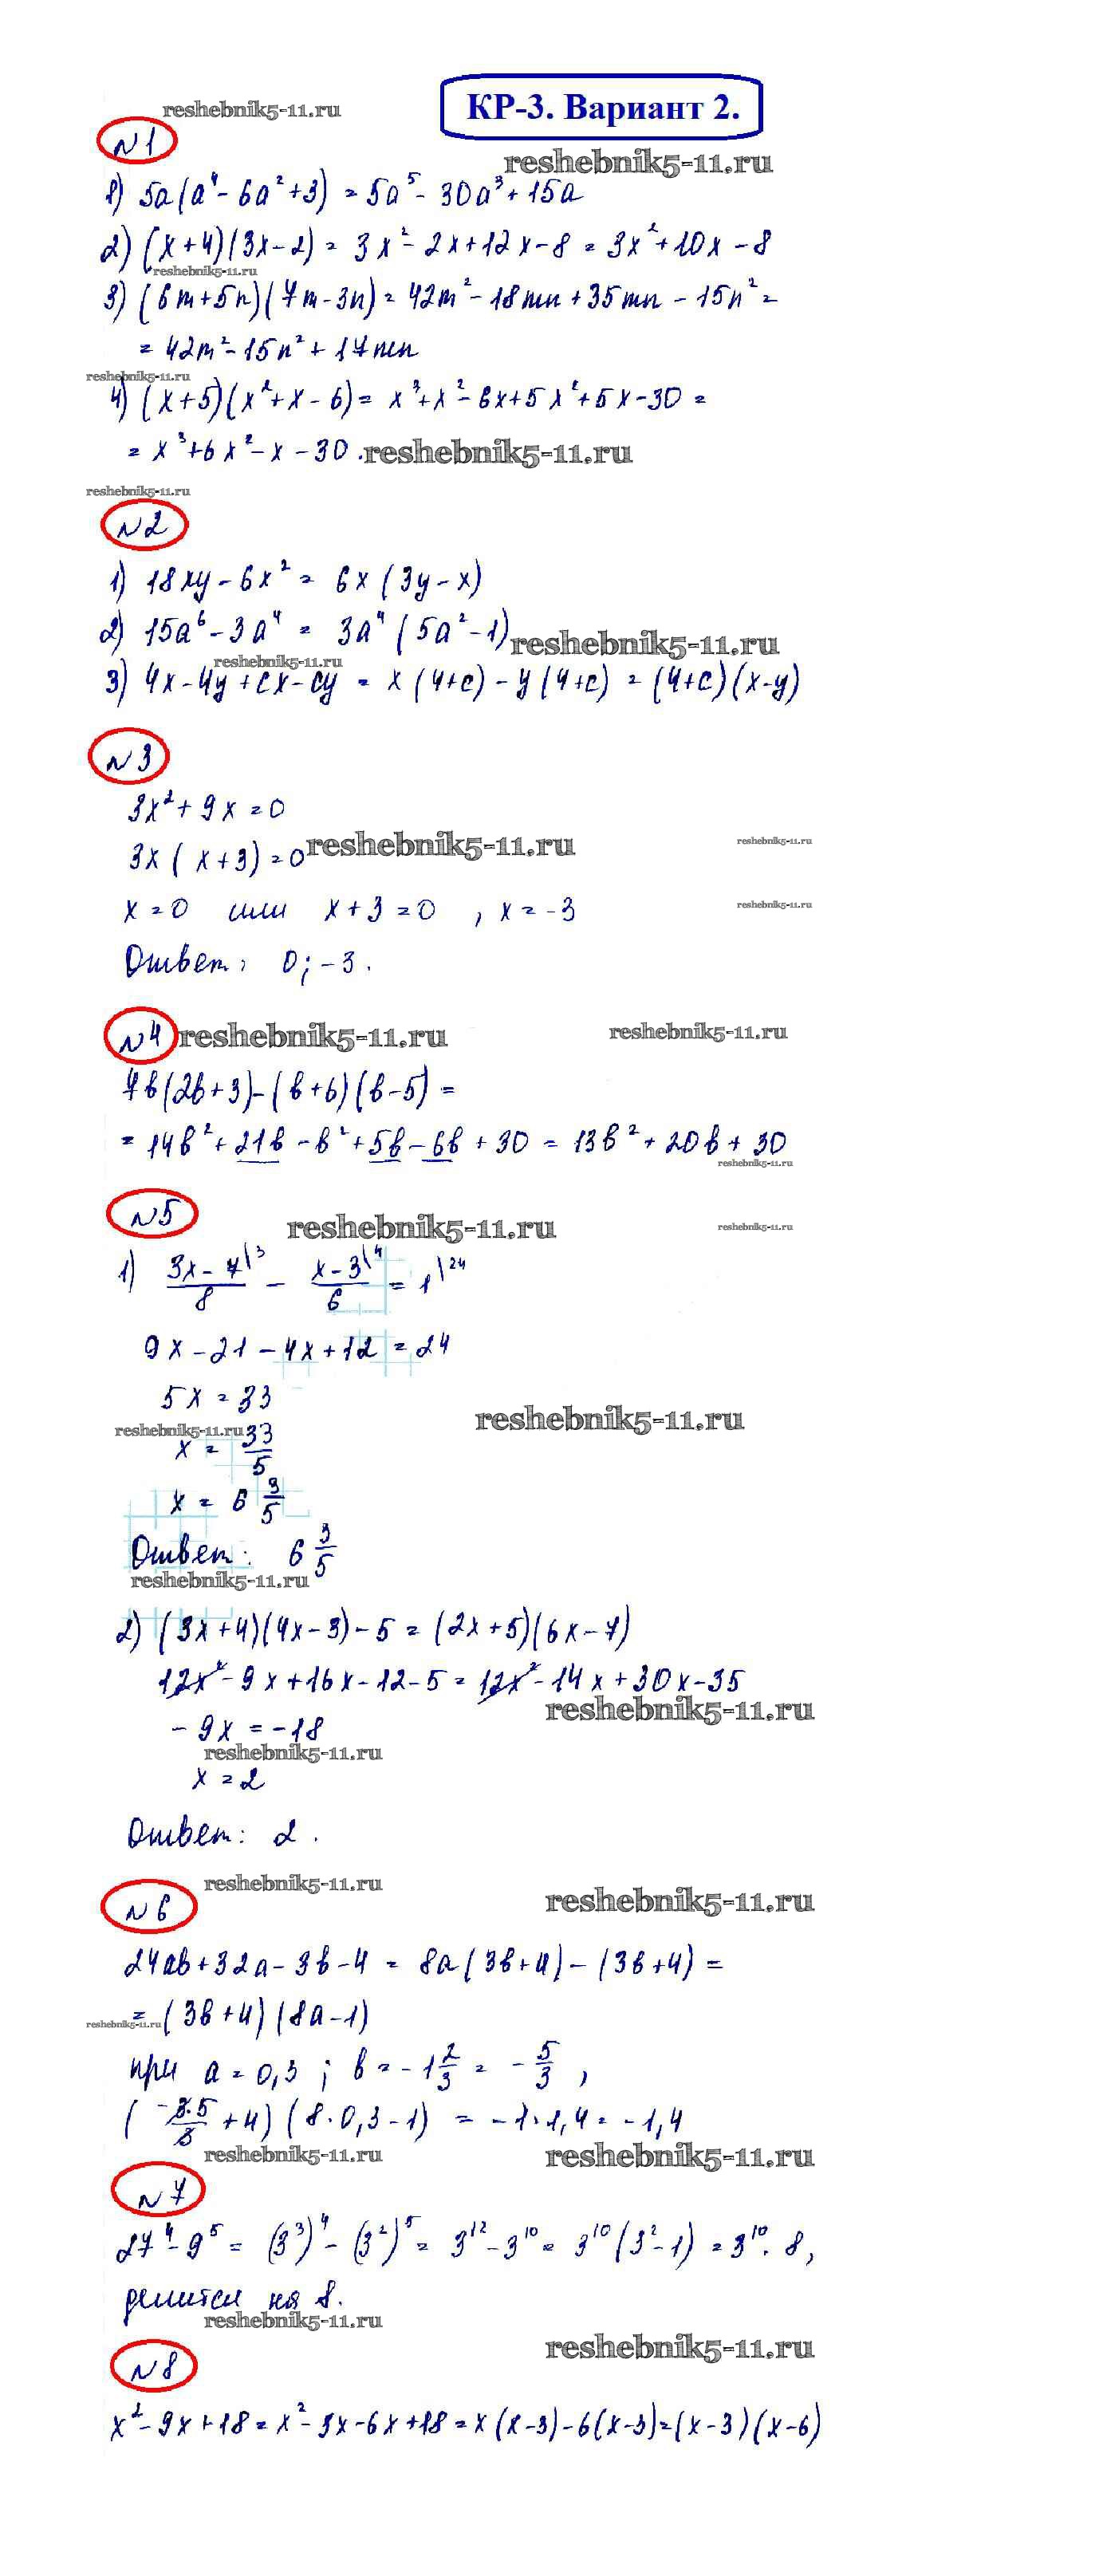 reshebnik5-11.ru
КР-3. Вариант 2.
№1
reshebnik5-11.ru
1) 5a(a⁴ - 6a² + 3) = 5a⁵ - 30a³ + 15a
2) (x+4)(3x-2) = 3x² - 2x + 12x - 8 = 3x² + 10x - 8
reshebnik5-11.ru
3) (6m+5n)(7m-3n) = 42m² - 18mn + 35mn - 15n² =
= 42m² - 15n² + 17mn
reshebnik5-11.ru
4) (x+5)(x²+x-6) = x³ + x² - 6x + 5x² + 5x - 30 =
= x³ + 6x² - x - 30.
reshebnik5-11.ru
reshebnik5-11.ru
№2
1) 18xy - 6x² = 6x(3y - x)
2) 15a⁶ - 3a⁴ = 3a⁴(5a² - 1)
reshebnik5-11.ru
reshebnik5-11.ru
3) 4x - 4y + cx - cy = x(4+c) - y(4+c) = (4+c)(x-y)
№3
3x² + 9x = 0
3x(x+3) = 0
reshebnik5-11.ru
reshebnik5-11.ru
x = 0 или x + 3 = 0 , x = -3
reshebnik5-11.ru
Ответ: 0; -3.
№4
reshebnik5-11.ru
reshebnik5-11.ru
7b(2b+3) - (b+6)(b-5) =
= 14b² + 21b - b² + 5b - 6b + 30 = 13b² + 20b + 30
reshebnik5-11.ru
№5
reshebnik5-11.ru
reshebnik5-11.ru
1) (3x-7)/8 \3 - (x-3)/6 \4 = 1\24
9x - 21 - 4x + 12 = 24
5x = 33
reshebnik5-11.ru
reshebnik5-11.ru
x = 33/5
x = 6 3/5
Ответ: 6 3/5
reshebnik5-11.ru
2) (3x+4)(4x-3) - 5 = (2x+5)(6x-7)
12x² - 9x + 16x - 12 - 5 = 12x² - 14x + 30x - 35
reshebnik5-11.ru
-9x = -18
reshebnik5-11.ru
x = 2
Ответ: 2.
reshebnik5-11.ru
№6
reshebnik5-11.ru
24ab + 32a - 3b - 4 = 8a(3b+4) - (3b+4) =
= (3b+4)(8a-1)
reshebnik5-11.ru
при a = 0,3 ; b = -1 2/3 = -5/3 ,
(-3·5/3 + 4)(8·0,3 - 1) = -1·1,4 = -1,4
reshebnik5-11.ru
reshebnik5-11.ru
№7
27⁴ - 9⁵ = (3³)⁴ - (3²)⁵ = 3¹² - 3¹⁰ = 3¹⁰(3² - 1) = 3¹⁰·8,
делится на 8.
reshebnik5-11.ru
reshebnik5-11.ru
№8
x² - 9x + 18 = x² - 3x - 6x + 18 = x(x-3) - 6(x-3) = (x-3)(x-6)